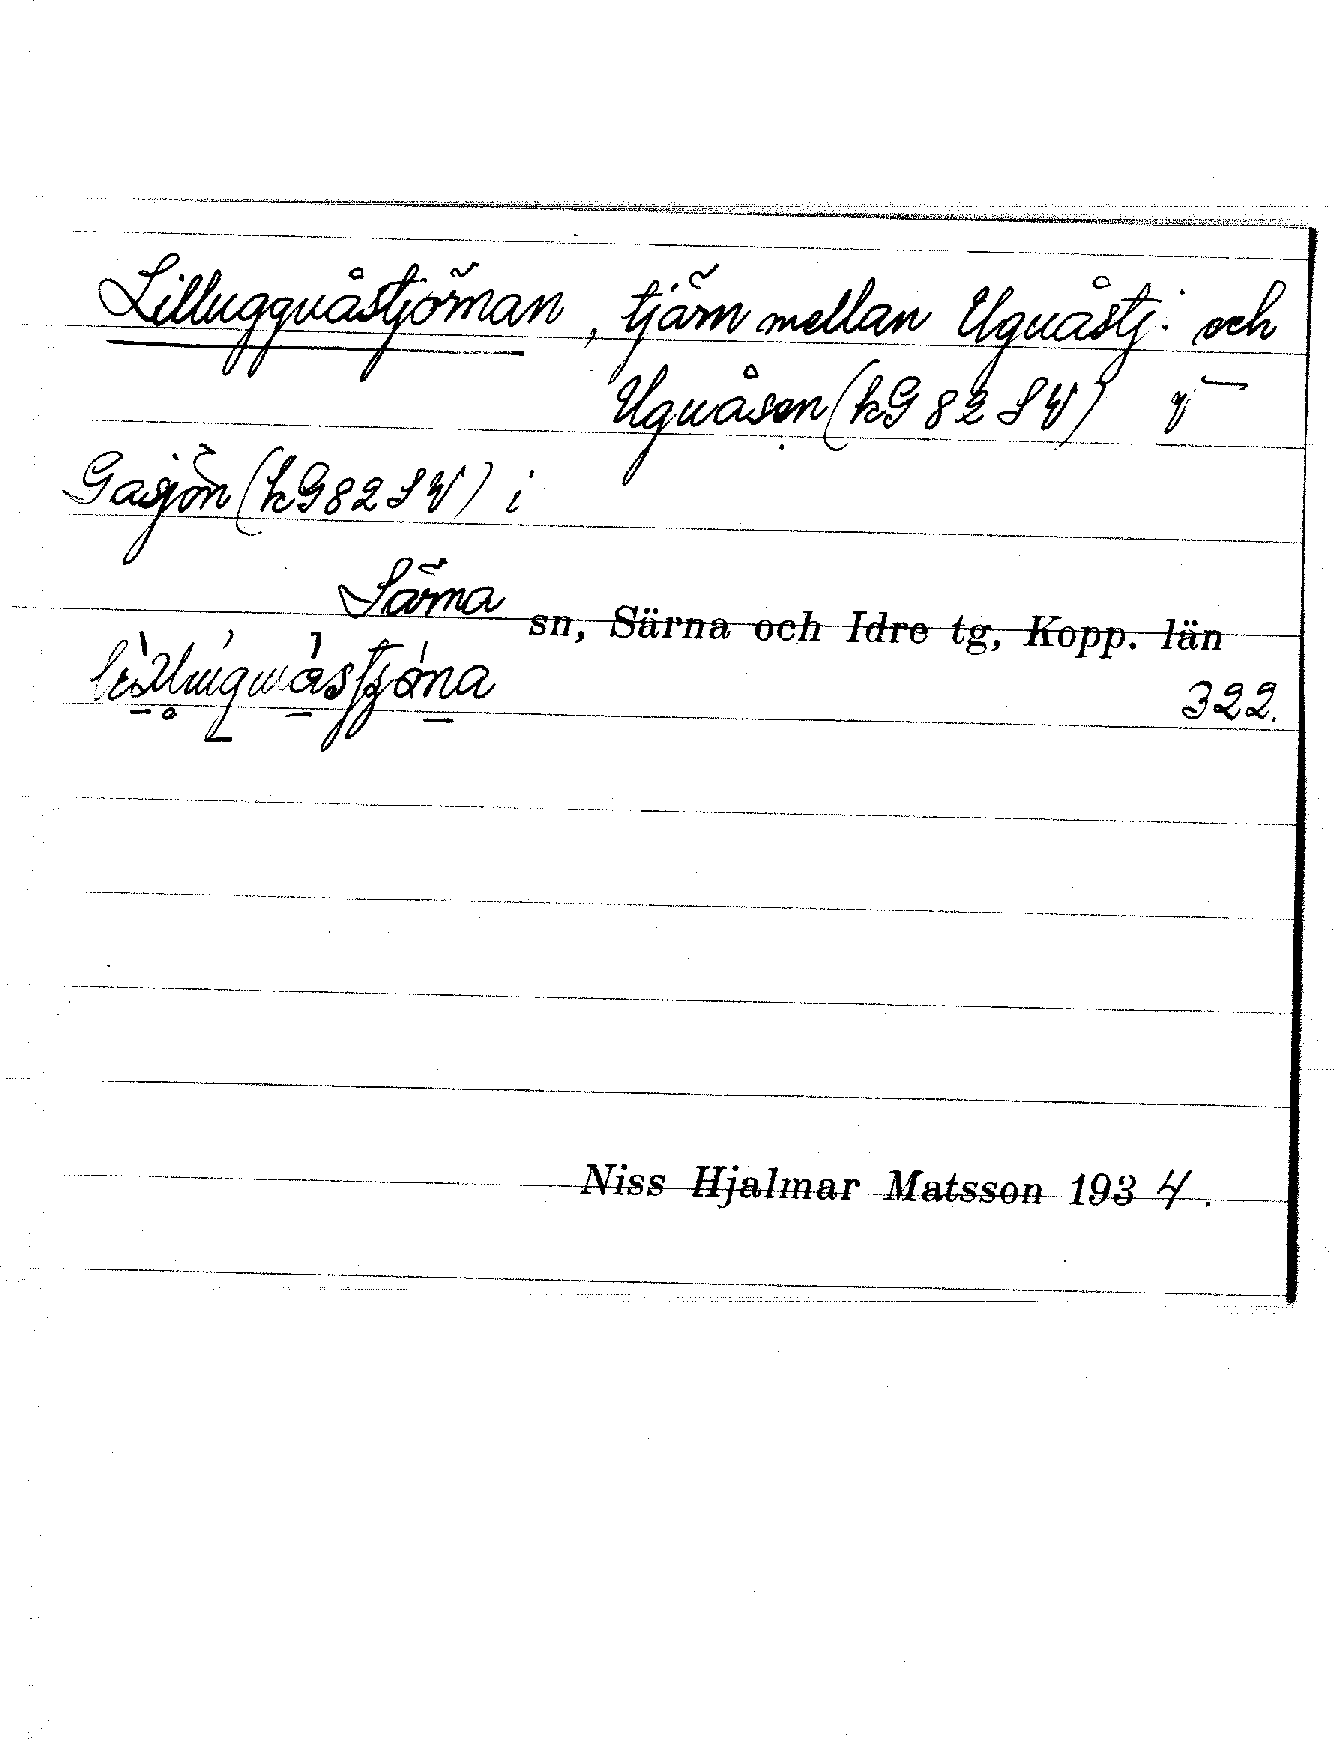 Lilluggnåstjörnan, tjärn mellan Ugnåstj. och
Ugnåsen (kG 82 SV) v
Gasjön (kG 82 SV) i
Särna sn, Särna och Idre tg, Kopp. län
322.
Niss Hjalmar Matsson 1934.